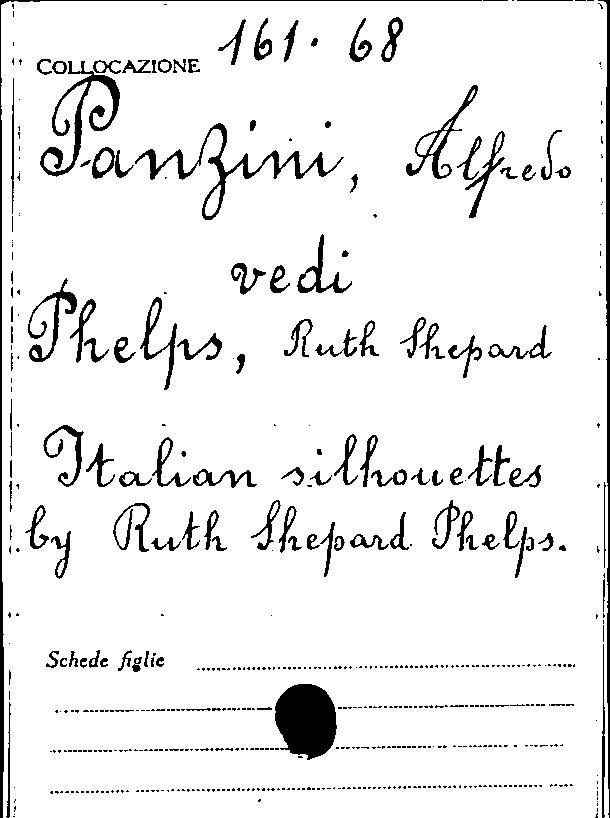 COLLOCAZIONE 161. 68
Panzini, Alfredo
vedi
Phelps, Ruth Shepard
Italian silhouettes
by Ruth Shepard Phelps.
Schede figlie